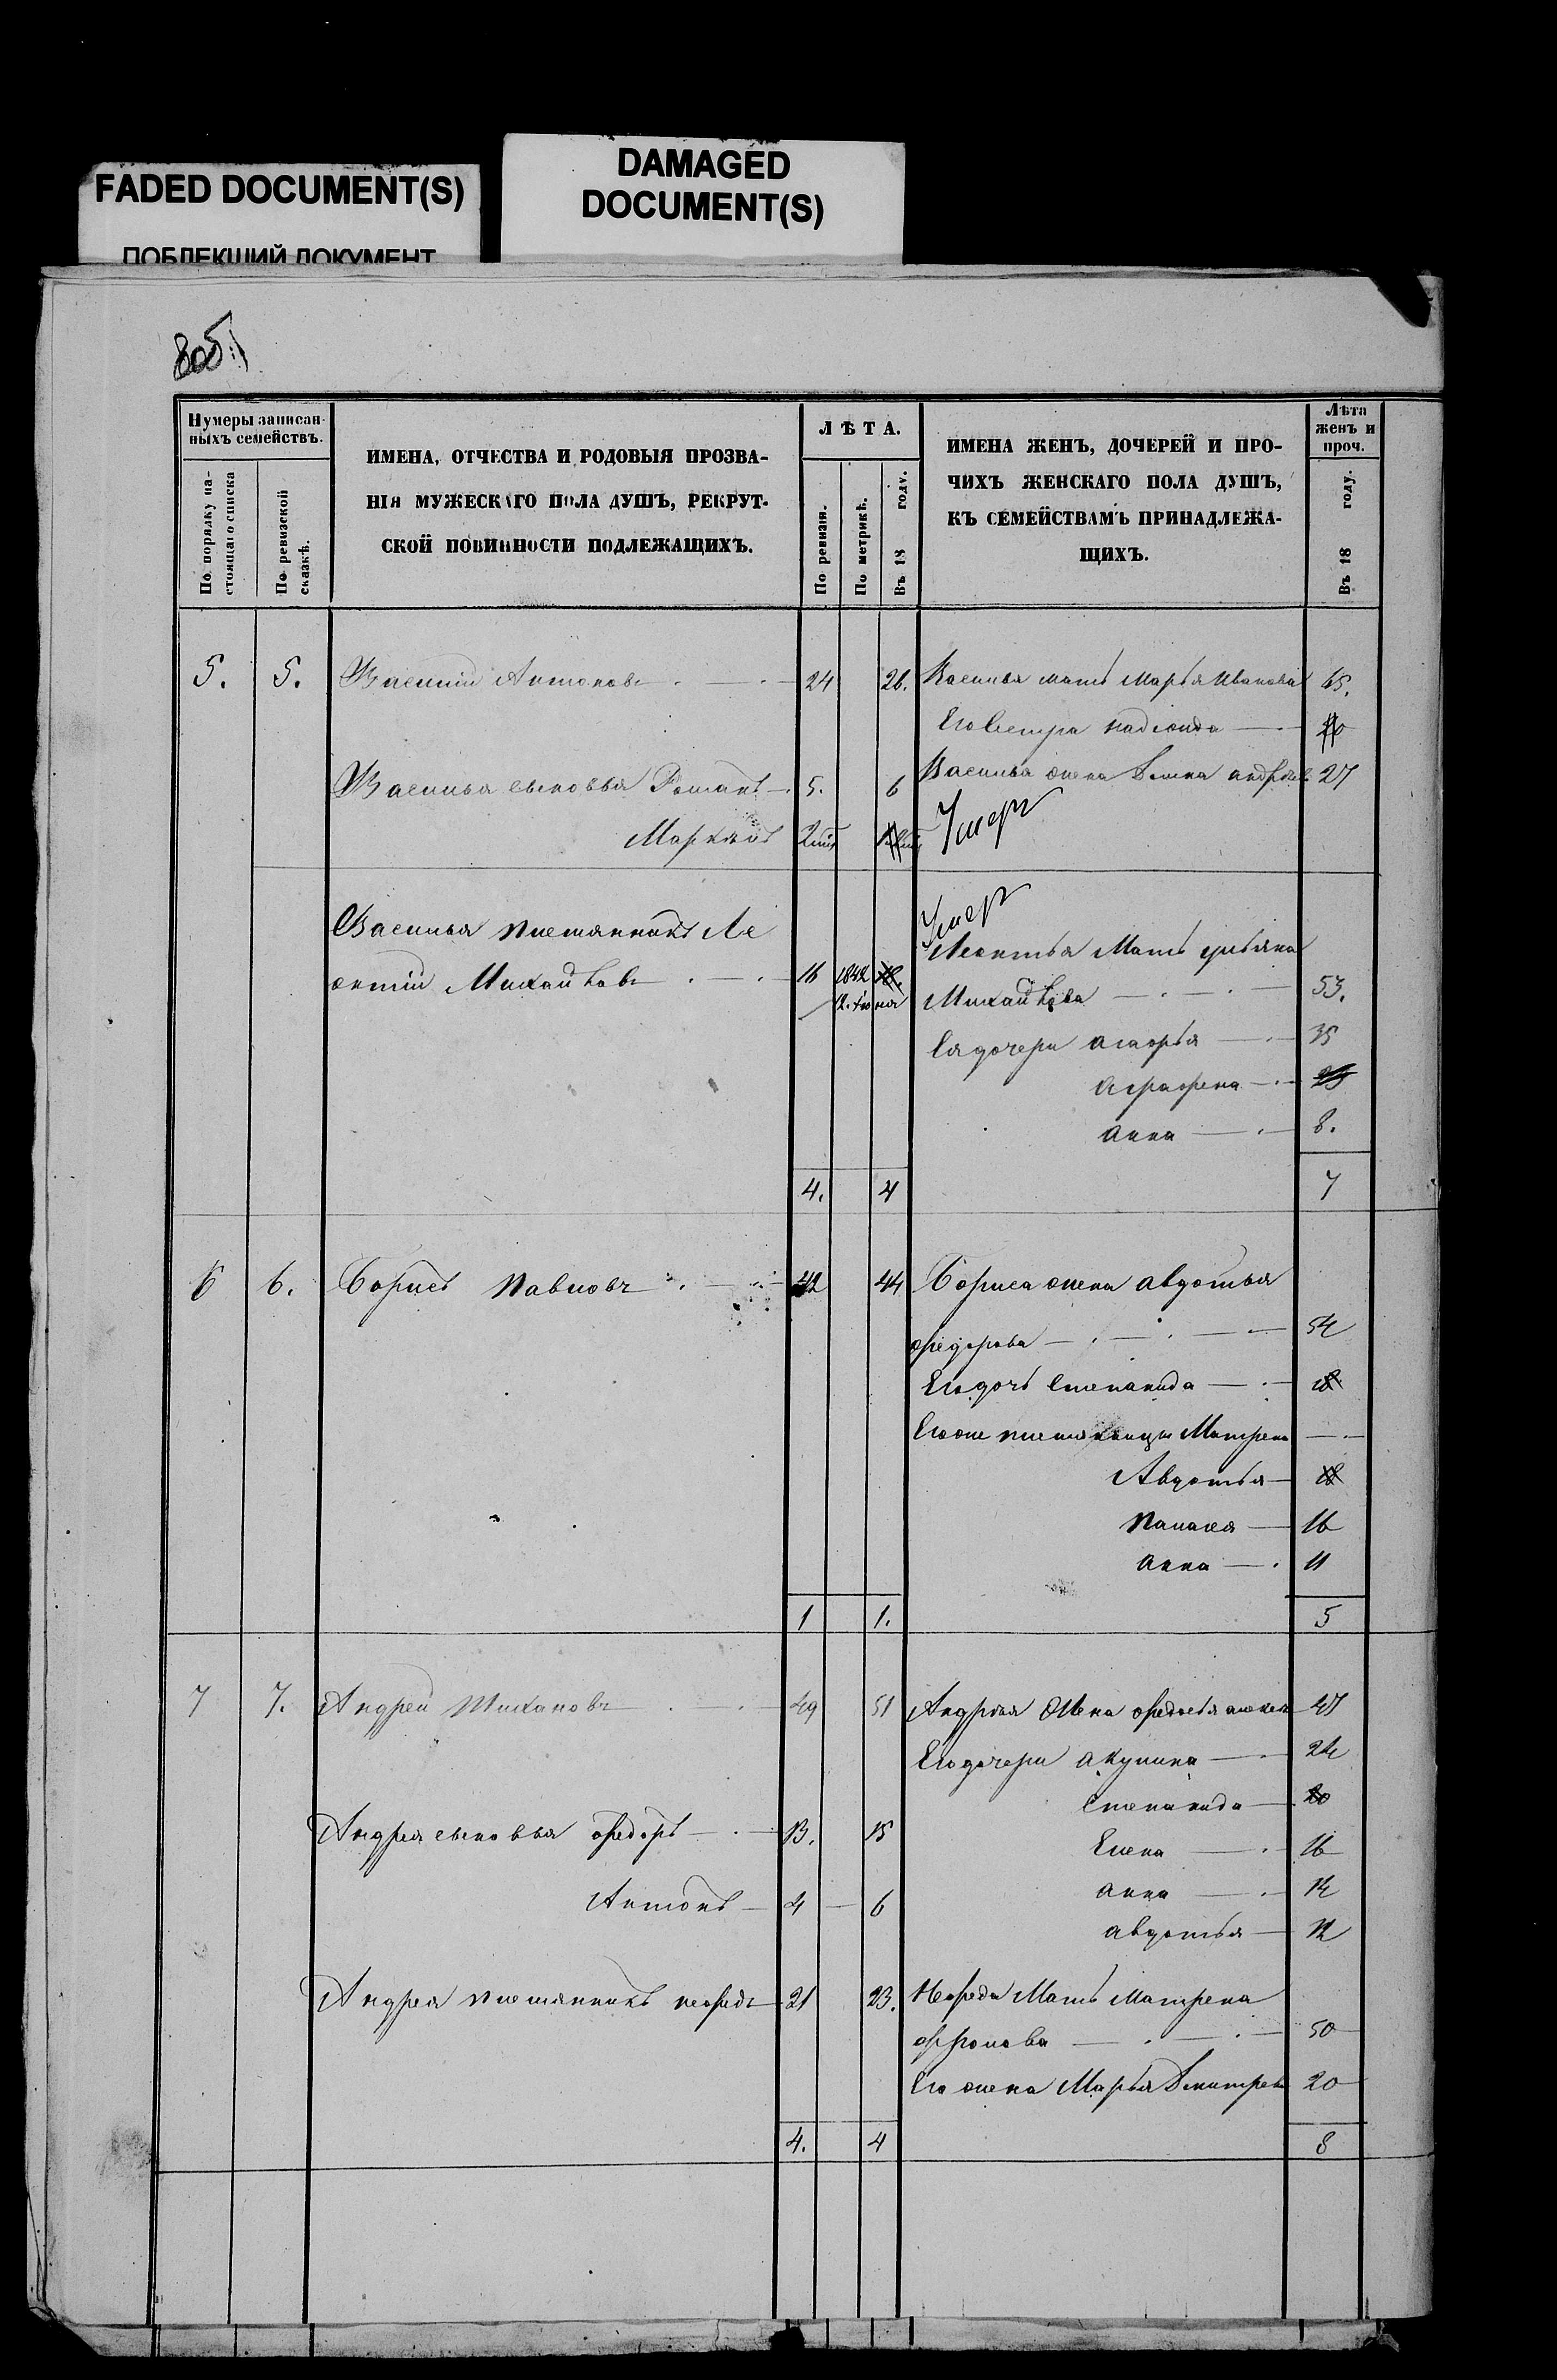 FADED DOCUMENT(S)
ПОБЛЕКШИЙ ДОКУМЕНТ
DAMAGED
DOCUMENT(S)
805.
Нумеры записан-
ныхъ семействъ.
По порядку на-
стоящаго списка
По ревизской
сказкѣ.
ИМЕНА, ОТЧЕСТВА И РОДОВЫЯ ПРОЗВА-
НІЯ МУЖЕСКАГО ПОЛА ДУШЪ, РЕКРУТ-
СКОЙ ПОВИННОСТИ ПОДЛЕЖАЩИХЪ.
ЛѢТА.
По ревизіи.
По метрикѣ.
Въ 18 году.
ИМЕНА ЖЕНЪ, ДОЧЕРЕЙ И ПРО-
ЧИХЪ ЖЕНСКАГО ПОЛА ДУШЪ,
КЪ СЕМЕЙСТВАМЪ ПРИНАДЛЕЖА-
ЩИХЪ.
Лѣта
женъ и
проч.
Въ 18 году.
5. 5. Василій Антоновъ 24 26. Василья мать Марья Иванова 65.
Его сестра Надежда
Василья сыновья Романъ 5. 6 Василья жена Домна Андреев 27
Маркъянъ Умеръ
Василья племянникъ Ле Умеръ
онтій Михайловъ 16 1842 18. Леонтья Мать Ульяна
12. Іюня Михайлова 53.
Ея дочери 35
Аграфена 23
Анна 8.
4. 4 7
6 6. Борисъ Павловъ 42 44 Бориса жена Авдотья
Федорова 54
Его дочь Степанида 18
Его же племянницы Матрена
Авдотья 18
Палагея 16
Анна 11
1 1. 5
7 7. Андрей 49 51 Андрея Жена Федосья 47
Его дочери Акулина 24
Степанида 20
Андрея сыновья Федоръ 13. 15
Елена 16
Анна 14
Антонъ 4 6
Авдотья 12
Андрея племянникъ Нефедъ 21 23. Нефеда Мать Матрена
Фролова 50
Его жена Марья Дмитрев 20
4. 4 8